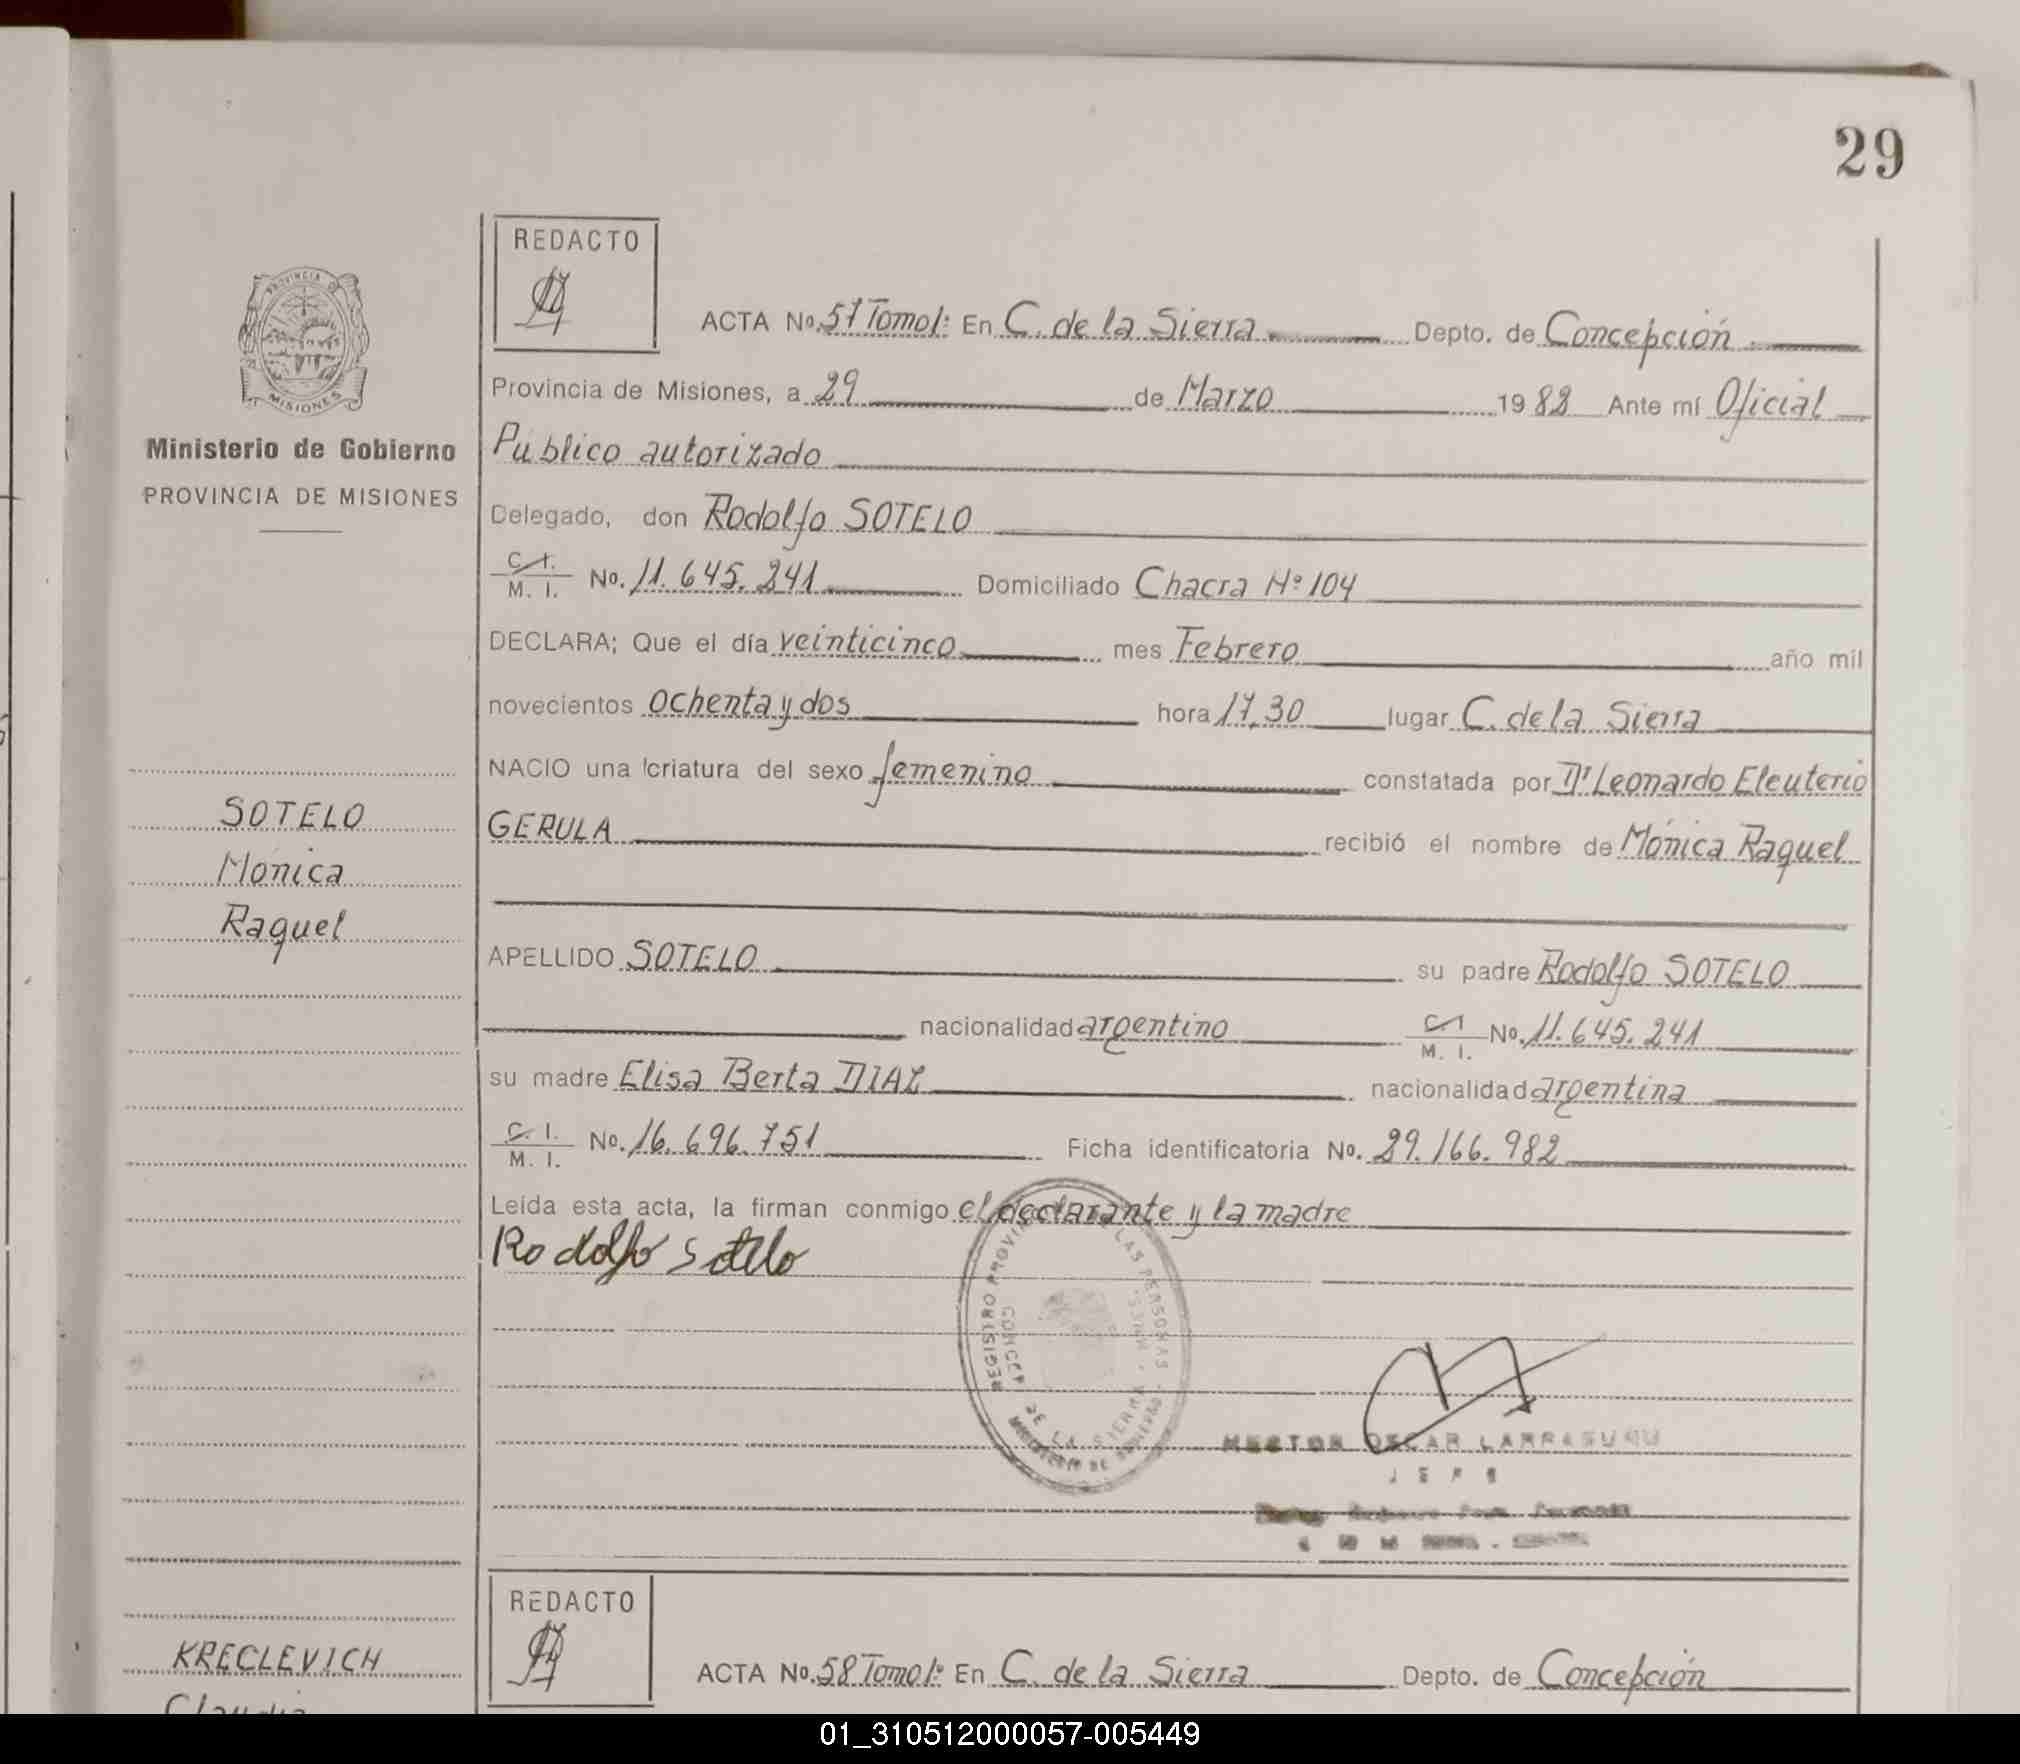 29
REDACTO
PROVINCIA DE
MISIONES
Ministerio de Gobierno
PROVINCIA DE MISIONES
ACTA No. 57 Tomo 1º En C. de la Sierra Depto. de Concepción
Provincia de Misiones, a 29 de Marzo 1982 Ante mí Oficial
Público autorizado
Delegado, don Rodolfo SOTELO
C.I. M. I. No. 11.645.241 Domiciliado Chacra Nº 104
DECLARA; Que el día veinticinco mes Febrero año mil
novecientos ochenta y dos hora 17,30 lugar C. de la Sierra
NACIO una criatura del sexo femenino constatada por Dr Leonardo Eleuterio
GERULA recibió el nombre de Mónica Raquel
SOTELO
Mónica
Raquel
APELLIDO SOTELO su padre Rodolfo SOTELO
nacionalidad argentino C.I M. I. No. 11.645.241
su madre Elisa Berta DIAZ nacionalidad argentina
C. I. M. I. No. 16.696.751 Ficha identificatoria No. 29.166.982
Leída esta acta, la firman conmigo el declarante y la madre
Rodolfo Sotelo
REGISTRO PROVIN LAS PERSONAS
DE LA SIERRA
HECTOR OSCAR LARRASUQU
JEFE
REDACTO
KRECLEVICH
Claudia
ACTA No. 58 Tomo 1º En C. de la Sierra Depto. de Concepción
01_310512000057-005449